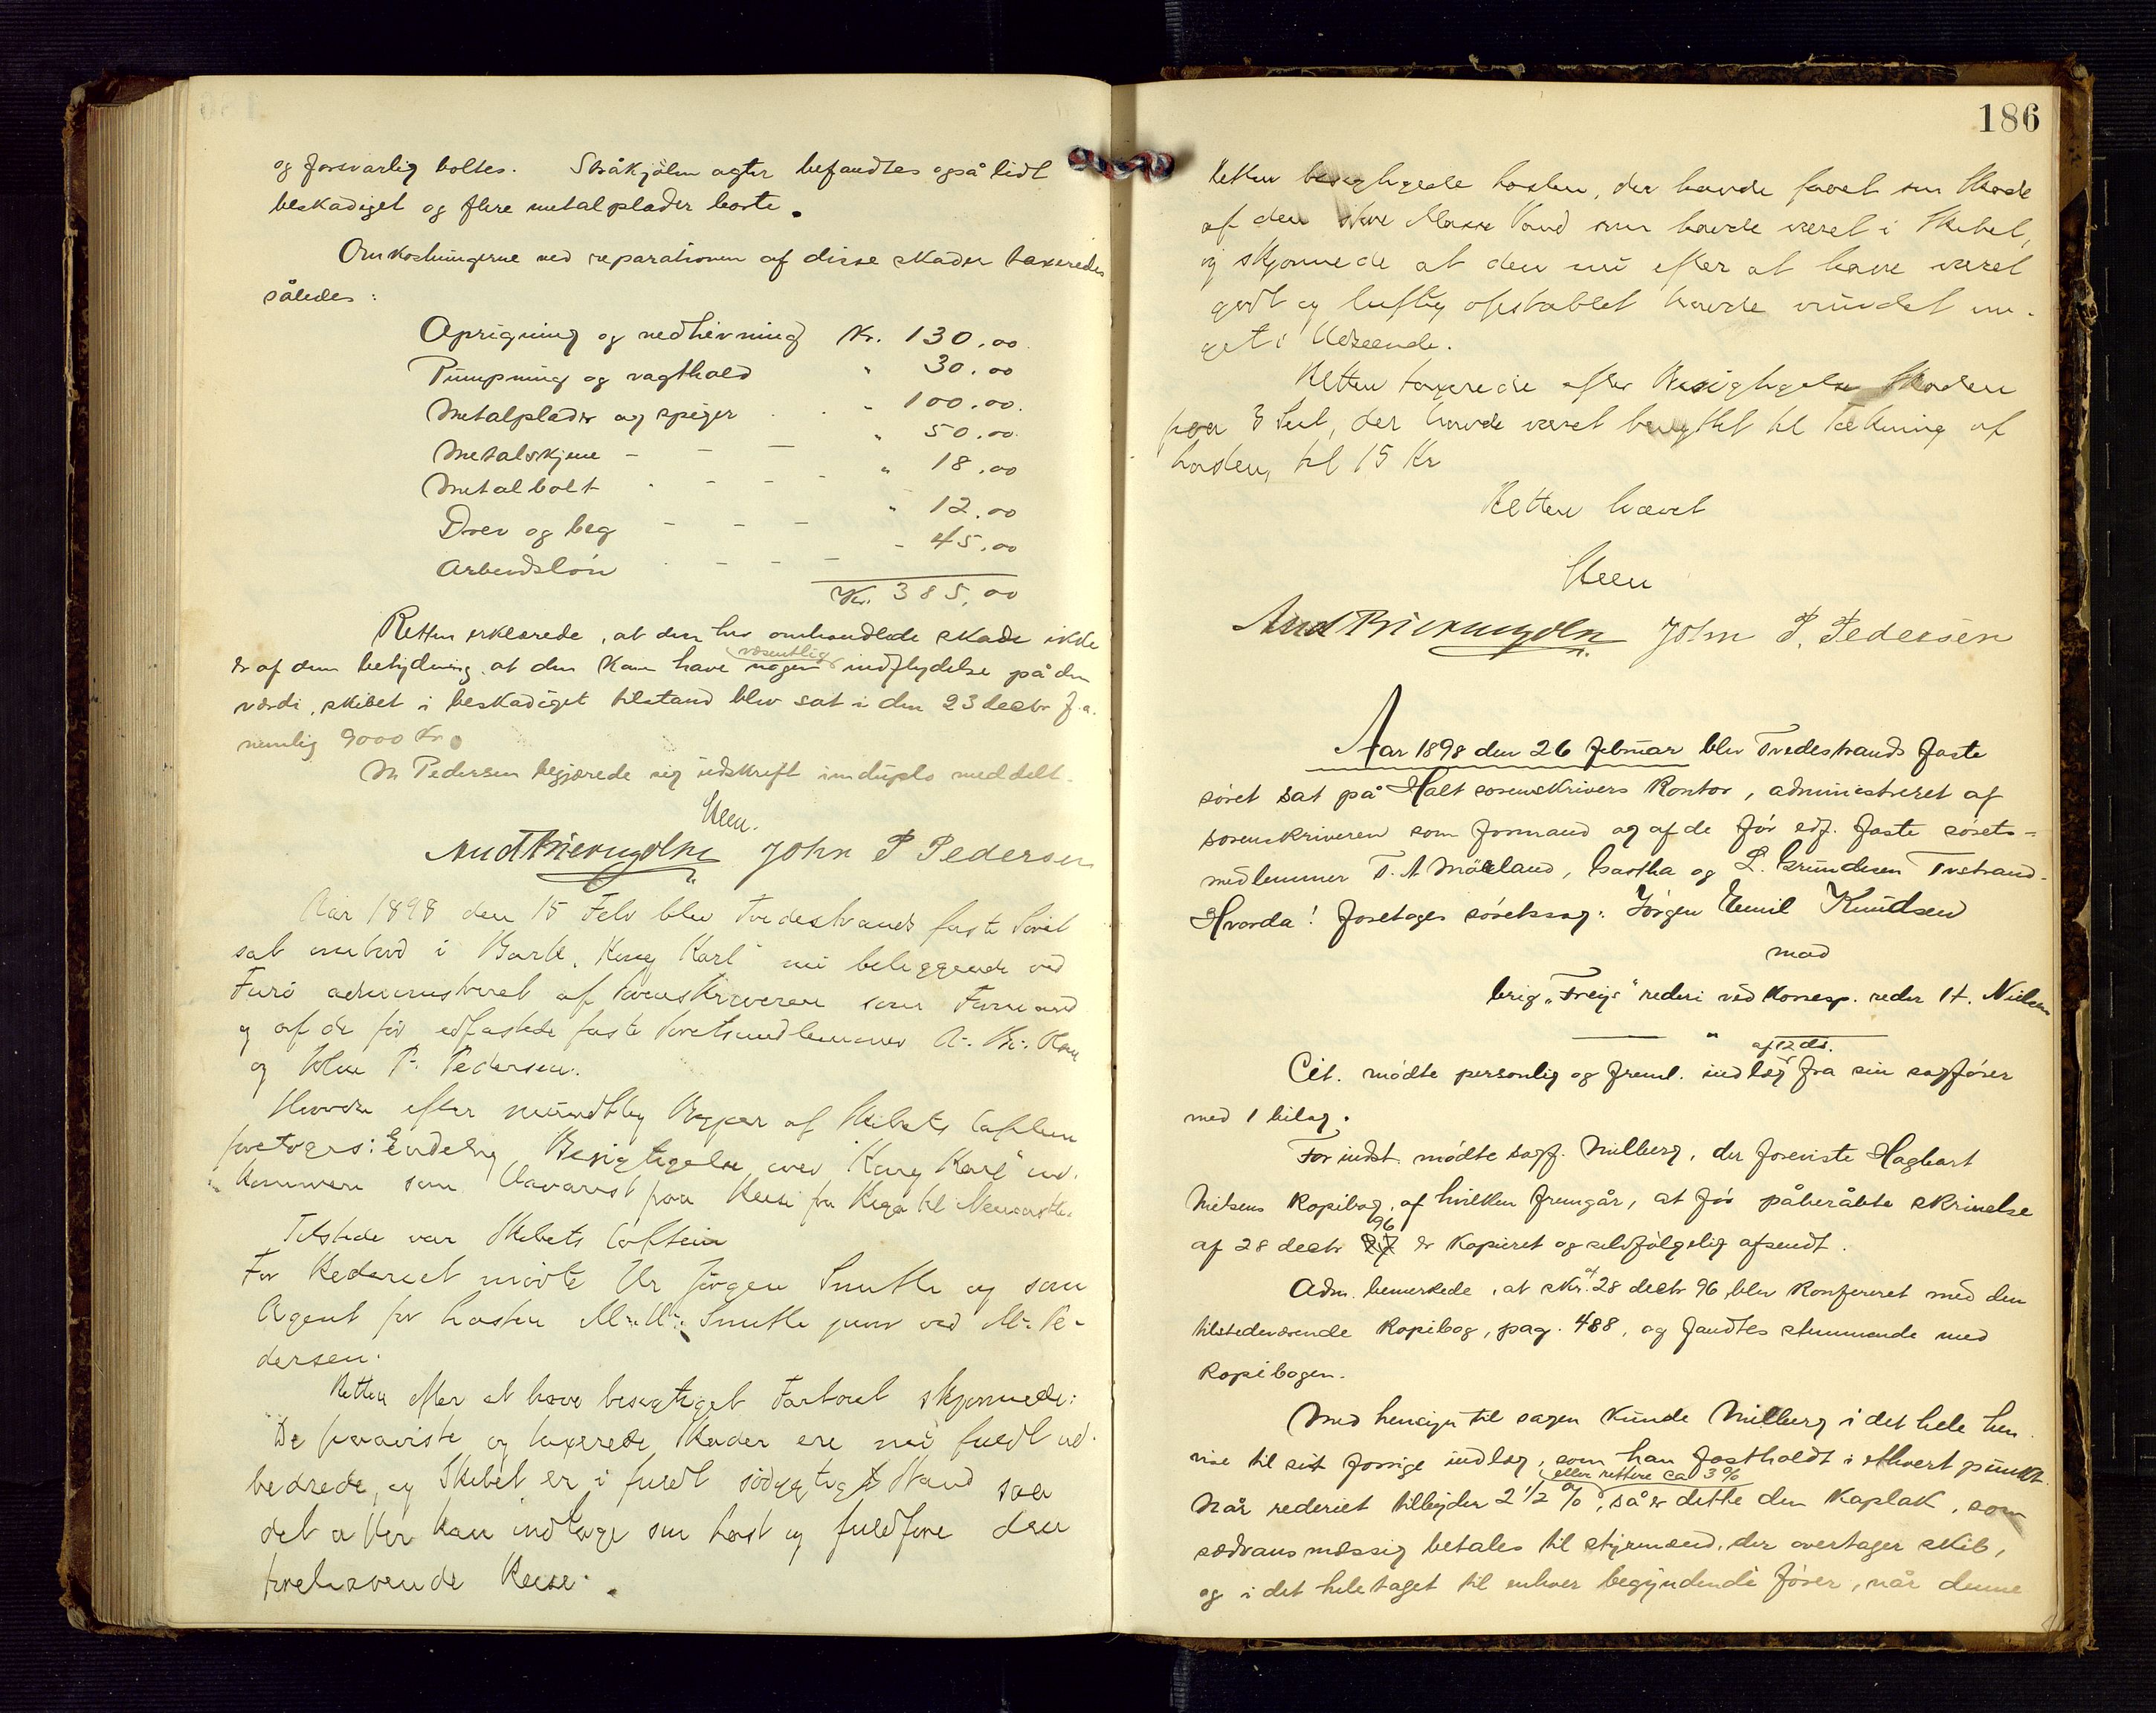 og forsvarlig boltes. Stråkjölen agter befandtes også lidt
beskadiget og flere metalplader borte.
Omkostningerne ved reparationen af disse skader taxeredes
således:
Oprigning og nedhivning Kr. 130.00
Pumpning og vagthold " 30.00
Metalplader og spiger " 100.00.
Metalskjene " 50.00
Metalbolt " 18.00
Drev og beg " 12.00
Arbeidslön - 45.00
Kr. 385,00
Retten erklærede, at den her omhandlede skade ikke
er af den betydning, at den kan have nogen væsentlig indflydelse på den
værdi, skibet i beskadiget tilstand blev sat i den 23 decbr f.a.
nemlig 9000 Kr.
M Pedersen begjærede sig udskrift in duplo meddelt.
Steen.
John P Pedersen
Aar 1898 den 15 Feb blev Tvedestrands faste Söret
sat ombord i Bark "Kong Karl" nu beliggende ved
Furö administreret af Sorenskriveren som Formand
og af de för edfæstede faste Söretsmedlemmer A. Br. Holm
og John P. Pedersen.
Hvorda efter mundtlig Begjær af Skibets Captein
foretoges: Endelig Besigtigelse over "Kong Karl" ind-
kommen som Havarist paa Reise fra Riga til Newcastle.
Tilstede var Skibets Captein
For Rederiet mödte Hr Jörgen Smith og som
Agent for Lasten M. Smith junr ved M. Pe-
dersen.
Retten efter at have besigtiget Fartöiet skjönnede:
De paaviste og taxerede Skader ere nu fuldt ud-
bedrede, og Skibet er i fuldt södygtigt Stand saa
det atter kan indtage sin Last og fuldföre den
forehavende Reise.
186
Retten besigtigede Lasten, der havde faaet sin Skade
af den store Masse Vand som havde været i Skibet,
og skjönnede at den nu efter at have været
godt og luftig opstablet havde vundet no-
get i Udseende.
Retten taxerede efter Besigtigelse Skaden
paa 3 Seil, der havde været benyttet til Tækning af
Lasten, til 15 Kr
Retten hævet
Steen
John P. Pedersen
Aar 1898 den 26 februar blev Tvedestrands faste
söret sat på Holt sorenskrivers Kontor, administreret af
sorenskriveren som formand og af de för edf. faste sörets-
medlemmer T. A Möeland, Gastha og L. Grundesen Tvestrand.
Hvorda! foretoges söretssag: Jörgen Emil Knudsen
mod
brig "Freys" rederi ved Korresp. reder H. Nielsen
"
Cit. mödte personlig og freml. indlæg af 12 ds. fra sin sagförer
med 1 bilag.
For indst. mödte sagf. Milberg, der foreviste Hagbart
Nielsens Kopibog, af hvilken fremgår, at för påberåbte skrivelse
af 28 decbr 96 er Kopieret og selvfölgelig afsendt.
Adm. bemerkede, at skr. af 28 decbr 96 blev Konfereret med den
tilstedeværende Kopibog, pag. 488, og fandtes stemmende med
Kopibogen.
Med hensyn til sagen Kunde Milberg i det hele hen-
vise til sit forrige indlæg, som han fastholdt i ethvert punkt.
Når rederiet tilbyder 2 1/2 % eller rettere ca 3 %, så er dette den Kaplak, som
sædvansmæssig betales til styrmænd, der overtager skib,
og i det hele taget til enhver begyndende förer, når denne